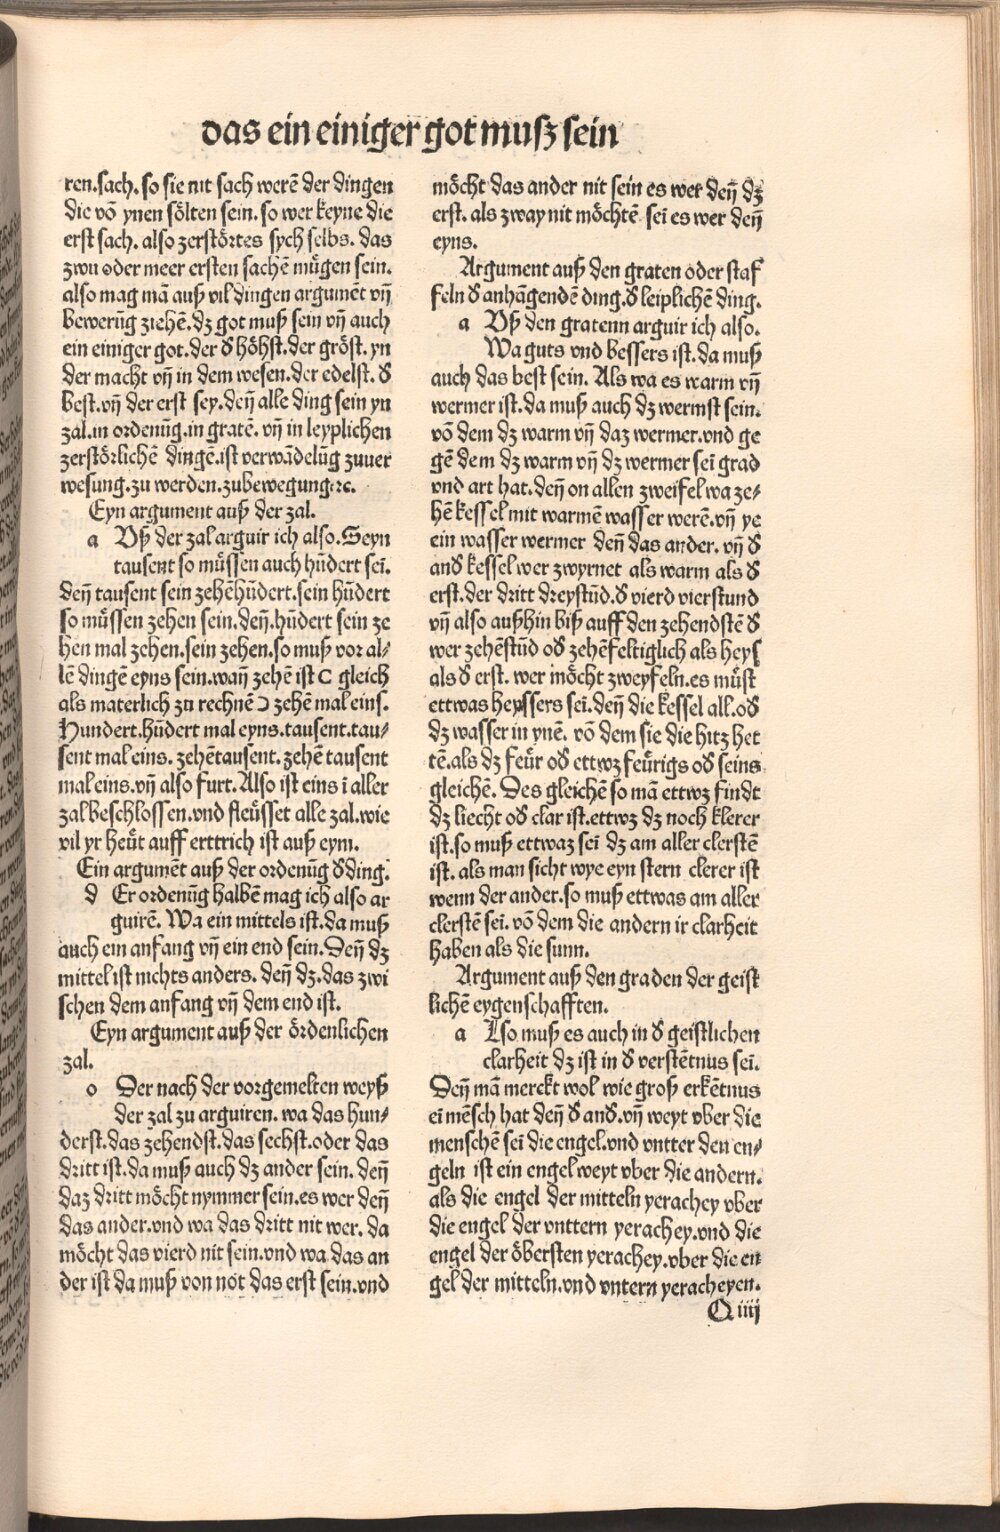 das ein einiger got musz sein
ren.sach. so sie nit sach werē der dingen
die vō ynen sölten sein. so wer keyne die
erst sach. also zerstörtes sych selbs. das
zwu oder meer ersten sachē mügen sein.
also mag mā auß vil dingen argumēt vn̄
bewerūg ziehē.dz got muß sein vn̄ auch
ein einiger got.der d̕ höhst.der gröst. yn
der macht vn̄ in dem wesen.der edelst. d̕
best.vn̄ der erst sey.den̄ alle ding sein yn
zal.in ordenūg.in gratē. vn̄ in leyplichen
zerstörlichē dingē.ist verwādelūg zuuer
wesung.zu werden.zubewegung.⁊c.
Eyn argument auß der zal.
a Vß der zal arguir ich also. Seyn
tausent so müssen auch hūdert sei.
den̄ tausent sein zehēhūdert.sein hūdert
so müssen zehen sein.den̄.hūdert sein ze
hen mal zehen.sein zehen.so muß vor al⸗
lē dingē eyns sein.wan̄ zehē ist C gleich
als materlich zu rechnē Ɔ zehē mal eins.
Hundert.hūdert mal eyns.tausent.tau⸗
sent mal eins. zehētausent. zehē tausent
mal eins.vn̄ also furt. Also ist eins ī aller
zal beschlossen.vnd fleüsset alle zal.wie
vil yr heüt auff erttrich ist auß eym.
Ein argumēt auß der ordenūg d̕ ding.
d Er ordenūg halbē mag ich also ar
guirē. Wa ein mittels ist.da muß
auch ein anfang vn̄ ein end sein.Den̄ dz
mittel ist nichts anders. den̄ dz.das zwi
schen dem anfang vn̄ dem end ist.
Eyn argument auß der ördenlichen
zal.
o Der nach der vorgemelten weyß
der zal zu arguiren. wa das hun⸗
derst.das zehendst.das sechst.oder das
dritt ist.da muß auch dz ander sein. den̄
daz dritt möcht nymmer sein.es wer den̄
das ander.vnd wa das dritt nit wer. da
möcht das vierd nit sein.vnd wa das an
der ist da muß von not das erst sein.vnd
möcht das ander nit sein es wer den̄ dz
erst. als zway nit möchtē sei es wer den̄
eyns.
Argument auß den graten oder staf
feln d̕ anhāgendē ding.d̕ leiplichē ding.
a Vß den gratenn arguir ich also.
Wa guts vnd bessers ist.da muß
auch das best sein. Als wa es warm vn̄
wermer ist.da muß auch dz wermst sein.
vō dem dz warm vn̄ daz wermer.vnd ge
gē dem dz warm vn̄ dz wermer sei grad
vnd art hat.den̄ on allen zweifel wa ze⸗
hē kessel mit warmē wasser werē.vn̄ ye
ein wasser wermer den̄ das ander. vn̄ d̕
and̕ kessel wer zwyrnet als warm als d̕
erst.der dritt dreystūd.d̕ vierd vierstund
vn̄ also außhin biß auff den zehendstē d̕
wer zehēstūd od̕ zehēfeltiglich als heyß
als d̕ erst. wer möcht zweyfeln.es müst
ettwas heyssers sei.den̄ die kessel all.od̕
dz wasser in ynē. vō dem sie die hitz het
tē.als dz feür od̕ ettwz feürigs od̕ seins
gleichē. Des gleichē so mā ettwz findt
dz liecht od̕ clar ist.ettwz dz noch klerer
ist.so muß ettwaz sei dz am aller clerstē
ist. als man sicht wye eyn stern clerer ist
wenn der ander.so muß ettwas am aller
clerstē sei. vō dem die andern ir clarheit
haben als die sunn.
Argument auß den graden der geist
lichē eygenschafften.
a Lso muß es auch in d̕ geistlichen
clarheit dz ist in d̕ verstētnus sei.
Den̄ mā merckt wol wie groß erkētnus
ei mēsch hat den̄ d̕ and̕.vn̄ weyt vber die
menschē sei die engel.vnd vntter den en⸗
geln ist ein engel weyt vber die andern.
als die engel der mitteln yerachey vber
die engel der vnttern yerachey.vnd die
engel der öbersten yerachey.vber die en
gel der mitteln.vnd vntern yeracheyen.
Q iiij